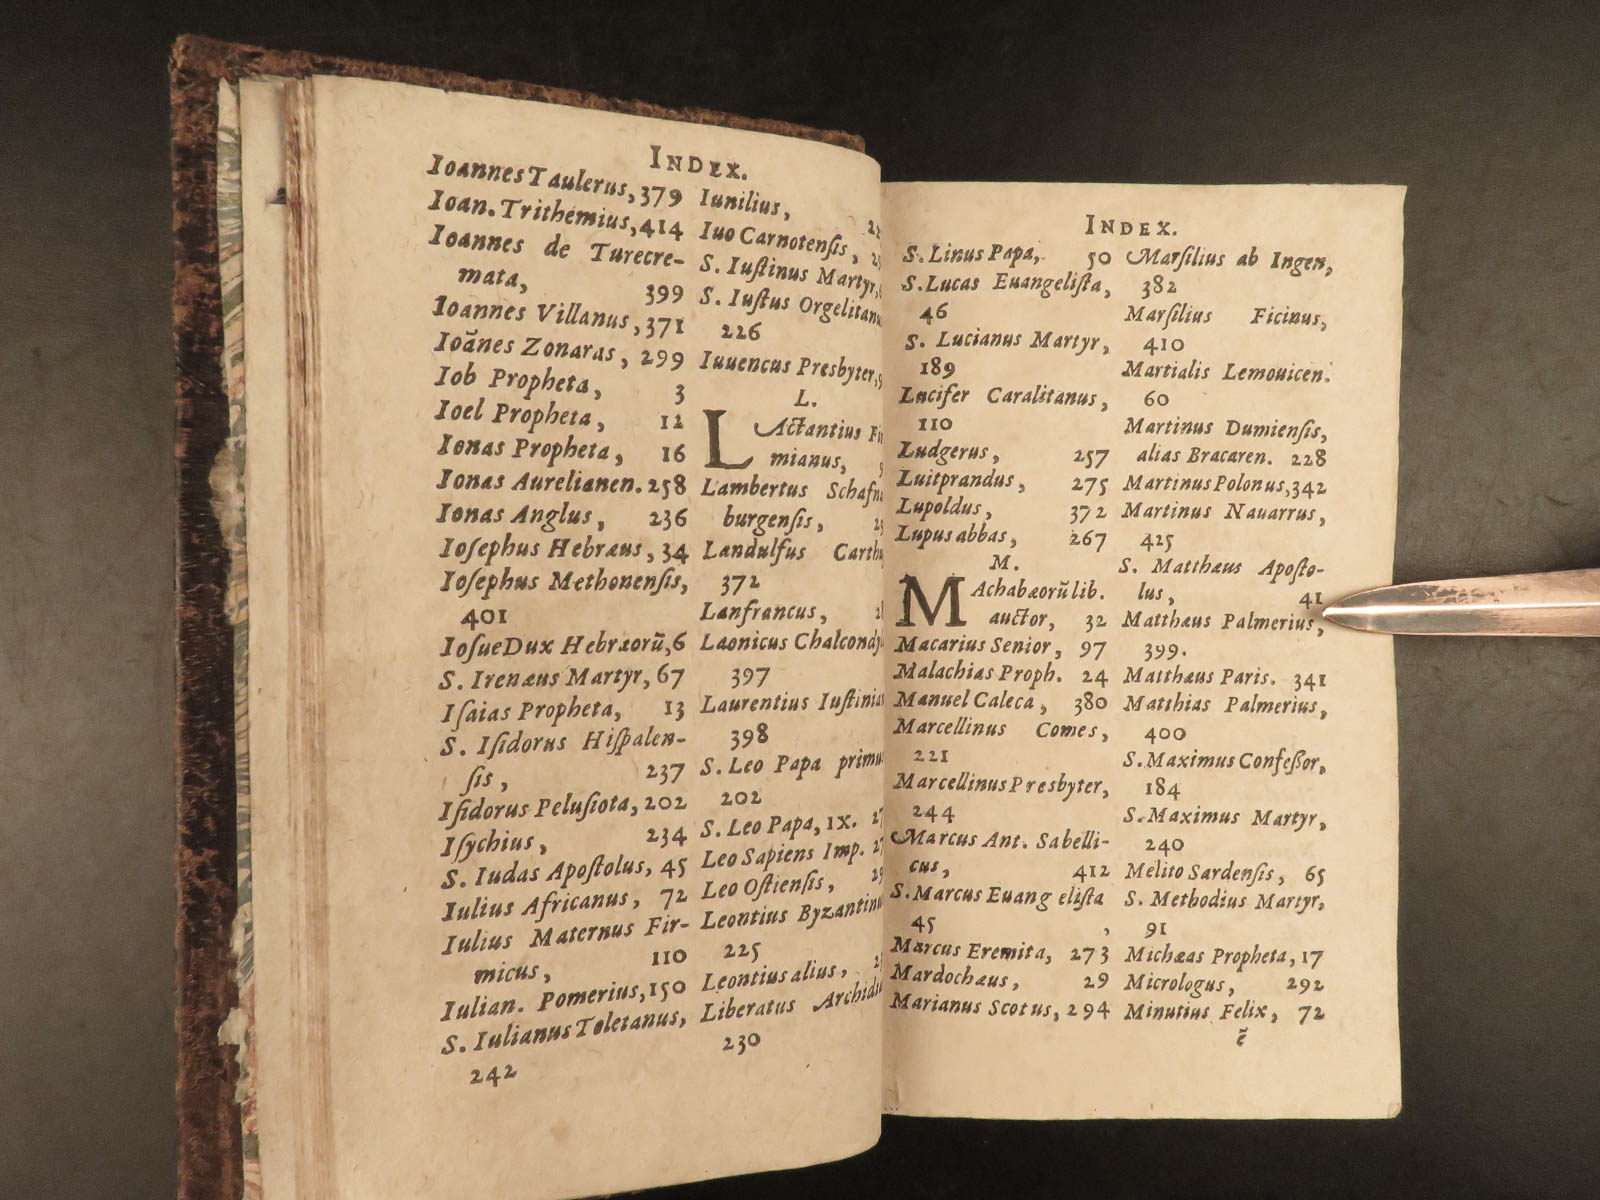 INDEX.
Ioannes Taulerus, 379
Ioan. Trithemius, 414
Ioannes de Turecre-
mata, 399
Ioannes Villanus, 371
Ioãnes Zonaras, 299
Iob Propheta, 3
Ioel Propheta, 12
Ionas Propheta, 16
Ionas Aurelianen. 258
Ionas Anglus, 236
Iosephus Hebræus, 34
Iosephus Methonensis,
401
Iosue Dux Hebræorũ, 6
S. Irenæus Martyr, 67
Isaias Propheta, 13
S. Isidorus Hispalen-
sis, 237
Isidorus Pelusiota, 202
Isychius, 234
S. Iudas Apostolus, 45
Iulius Africanus, 72
Iulius Maternus Fir-
micus, 110
Iulian. Pomerius, 150
S. Iulianus Toletanus,
242
Iunilius,
Iuo Carnotensis,
S. Iustinus Martyr,
S. Iustus Orgelitanu
226
Iuuencus Presbyter,
L.
LActantius Fir
mianus,
Lambertus Schafn
burgensis,
Landulfus Carthu
372
Lanfrancus,
Laonicus Chalcondy
397
Laurentius Iustinia
398
S. Leo Papa primu
202
S. Leo Papa, IX.
Leo Sapiens Imp.
Leo Ostiensis,
Leontius Byzantinu
225
Leontius alius,
Liberatus Archidia
230
INDEX.
S. Linus Papa, 50
S. Lucas Euangelista,
46
S. Lucianus Martyr,
189
Lucifer Caralitanus,
110
Ludgerus, 257
Luitprandus, 275
Lupoldus, 372
Lupus abbas, 267
M.
MAchabæorũ lib.
auctor, 32
Macarius Senior, 97
Malachias Proph. 24
Manuel Caleca, 380
Marcellinus Comes,
221
Marcellinus Presbyter,
244
Marcus Ant. Sabelli-
cus, 412
S. Marcus Euangelista
45 ,
Marcus Eremita, 273
Mardochæus, 29
Marianus Scotus, 294
Marsilius ab Ingen,
382
Marsilius Ficinus,
410
Martialis Lemouicen.
60
Martinus Dumiensis,
alias Bracaren. 228
Martinus Polonus, 342
Martinus Nauarrus,
425
S. Matthæus Aposto-
lus, 41
Matthæus Palmerius,
399.
Matthæus Paris. 341
Matthias Palmerius,
400
S. Maximus Confessor,
184
S. Maximus Martyr,
240
Melito Sardensis, 65
S. Methodius Martyr,
91
Michæas Propheta, 17
Micrologus, 292
Minutius Felix, 72
ẽ